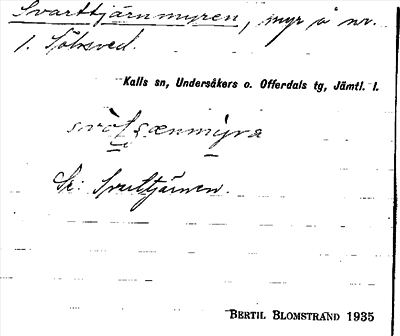 Svarttjärnmyren, myr å nr.
1. Sölsved.
Kalls sn, Undersåkers o. Offerdals tg, Jämtl. l.
Se: Svarttjärnen.
BERTIL BLOMSTRAND 1935